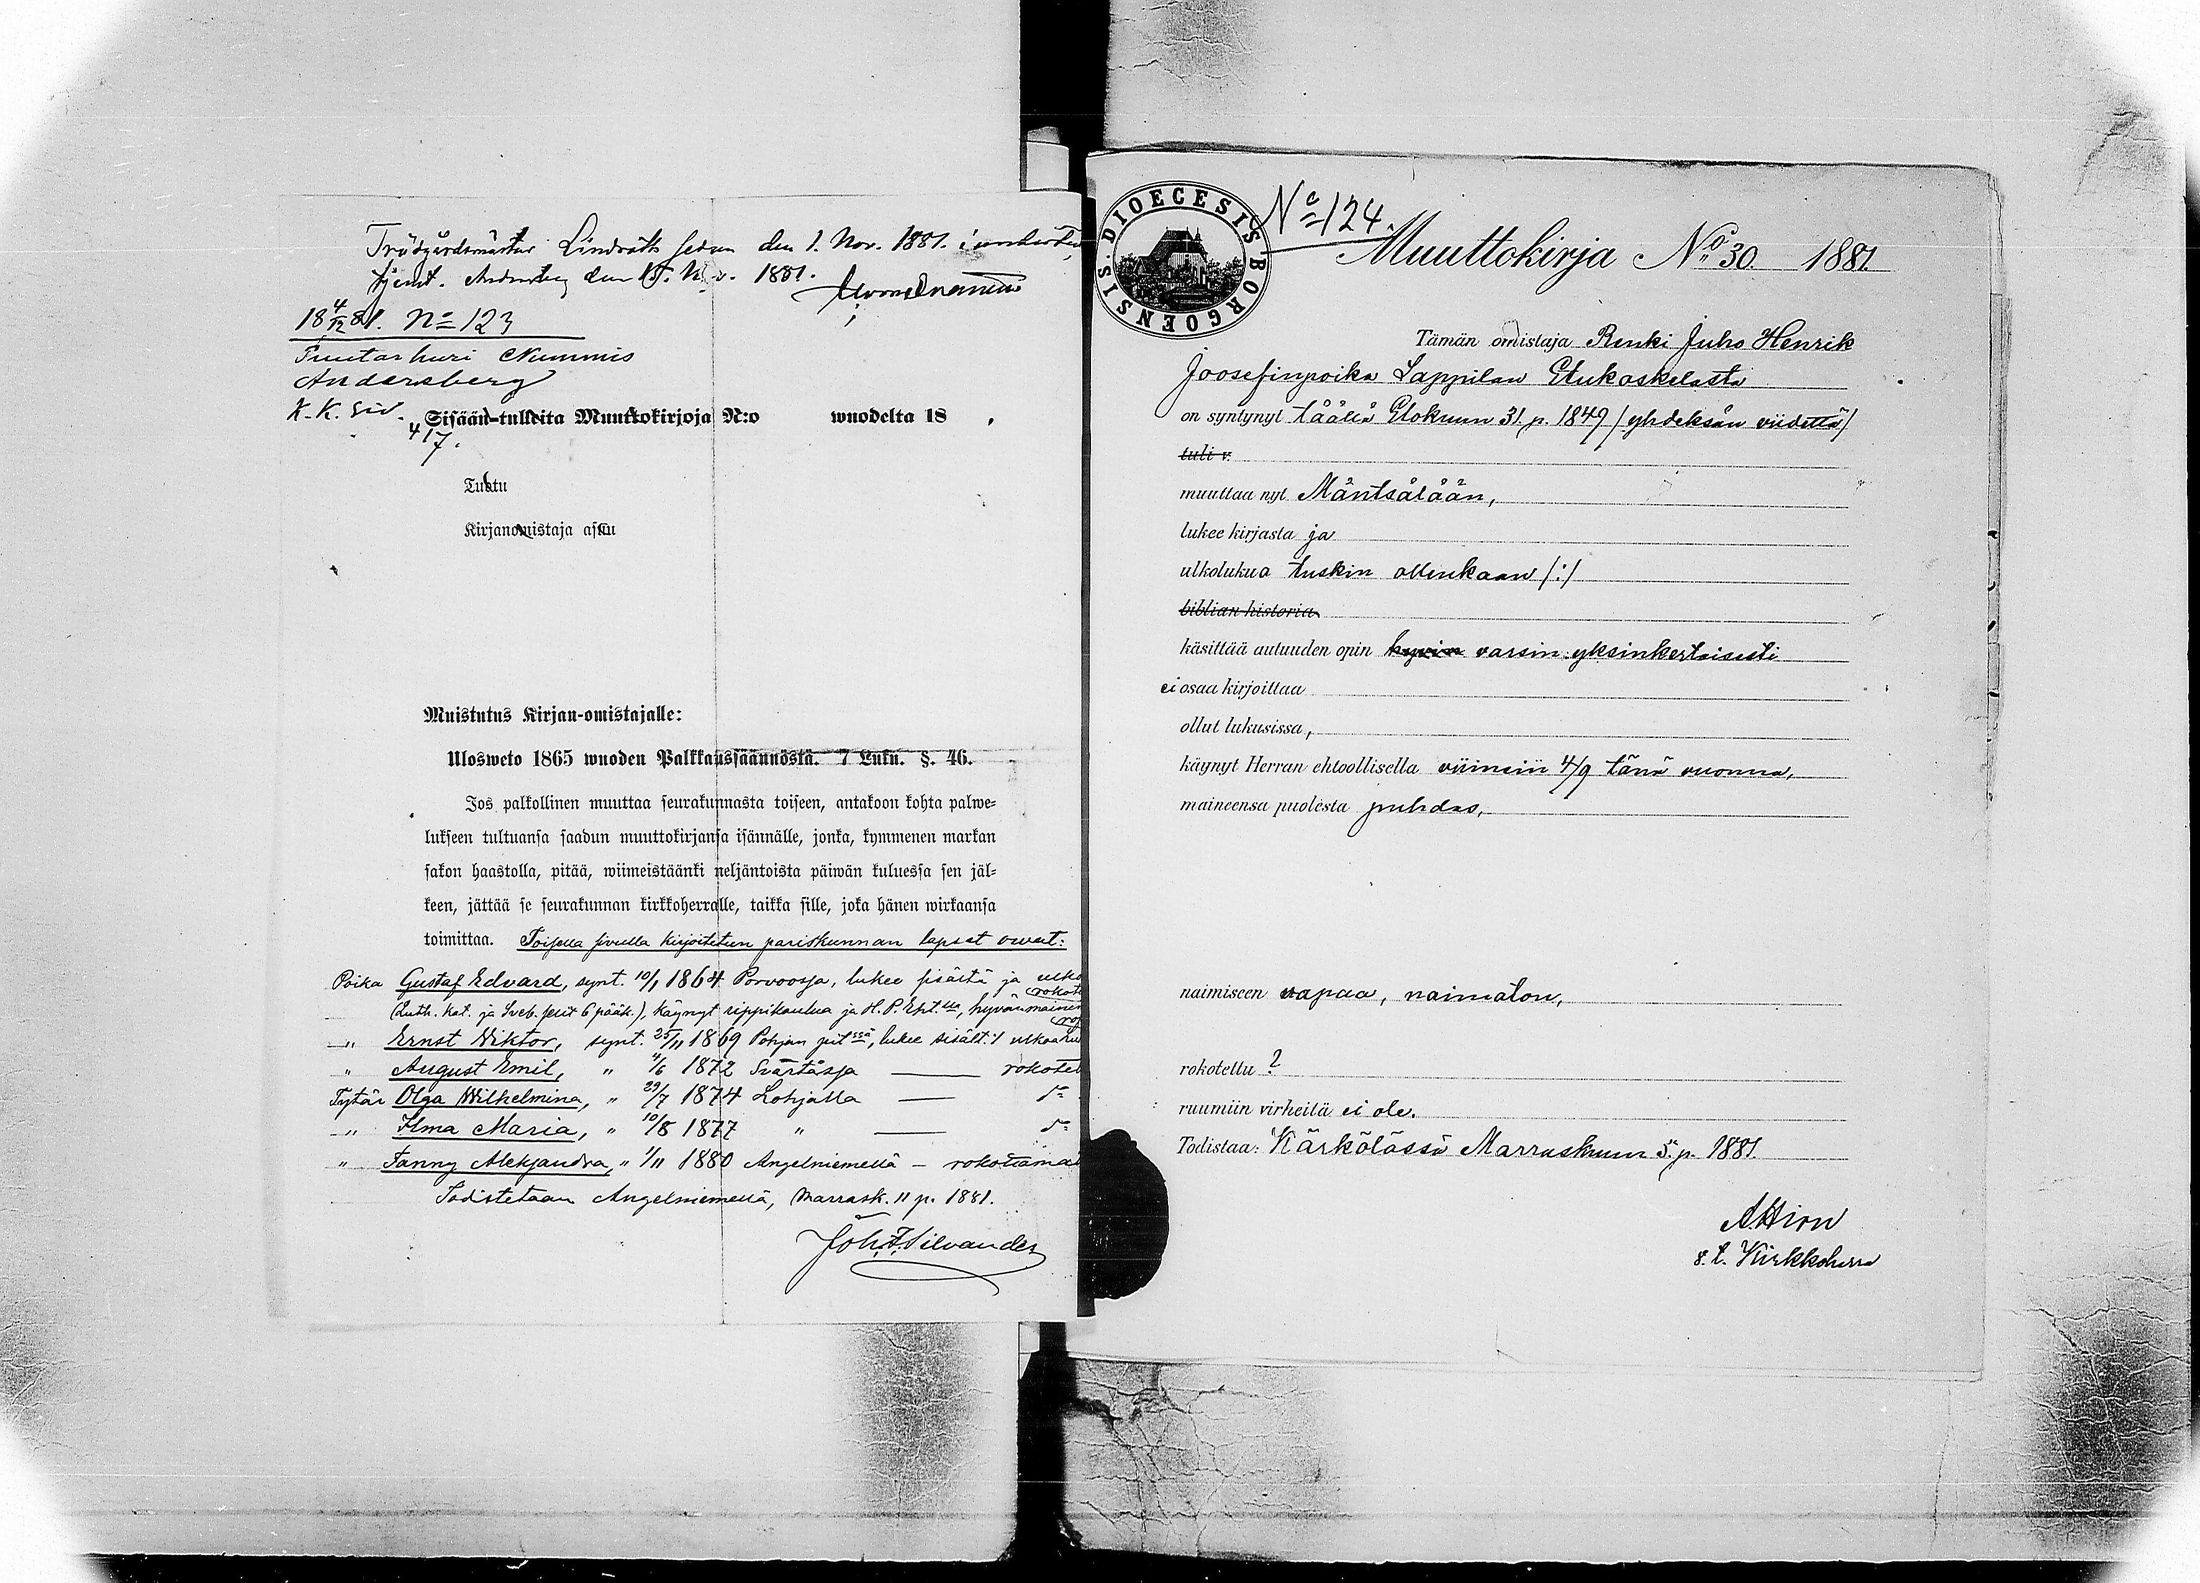 Trädgårdsmästar Lindroth sedan den 1. Nov. 1881. i
tjenst. den 15. Nov. 1881.
18 4/12 81. No 123
Puutarhuri Nummis
Andersberg
K. K. siv.
417.
Sisään-tulleita Muuttokirjoja N:o wuodelta 18 .
Tuttu
Kirjanomistaja asuu
Muistutus Kirjan-omistajalle:
Ulosweto 1865 wuoden Palkkaussäännöstä. 7 Luku. §. 46.
Jos palkollinen muuttaa seurakunnasta toiseen, antakoon kohta palwe-
lukseen tultuansa saadun muuttokirjansa isännälle, jonka, kymmenen markan
sakon haastolla, pitää, wiimeistäänki neljäntoista päiwän kuluessa sen jäl-
keen, jättää se seurakunnan kirkkoherralle, taikka sille, joka hänen wirkaansa
toimittaa. Toisella sivulla kirjoitetun pariskunnan lapset ovat:
Poika Gustaf Edvard, synt. 10/1 1864 Porvoossa, lukee sisältä ja ulko
(Luth. kat. ja Sveb. selit 6 pääk.), käynyt rippikoulua ja H. P. Eht.lla, hyvämaine
" Ernst Wiktor, synt. 25/11 1869 Pohjan pit:ssä, lukee sisält. /
" August Emil, " 4/6 1872 Svartåssa — rokotet
Tytär Olga Wilhelmina, " 29/7 1874 Lohjalla —
" Ilma Maria, " 10/8 1877 " —
" Fanny Aleksandra, " 1/11 1880 Angelniemellä — rokottamat
Todistetaan Angelniemellä, Marrask. 11 p. 1881.
Joh. F. Silvander
S. DIOECESIS BORGOENSIS.
No 124.
Muuttokirja No 30. 1881.
Tämän omistaja Renki Juho Henrik
Joosefinpoika Lappilan Etukoskelasta
on syntynyt täällä Elokuun 31. p. 1849 / yhdeksän viidettä /
tuli v.
muuttaa nyt Mäntsälään,
lukee kirjasta ja
ulkolukua tuskin ollenkaan /:/
biblian historia
käsittää autuuden opin hyvin varsin yksinkertaisesti
ei osaa kirjoittaa
ollut lukusissa,
käynyt Herran ehtoollisella viimein 4/9 tänä vuonna,
maineensa puolesta puhdas,
naimiseen vapaa, naimaton,
rokotettu ?
ruumiin virheitä ei ole.
Todistaa: Kärkölässä Marraskuun 5. p. 1881.
A Hirn
v. t. Kirkkoherra